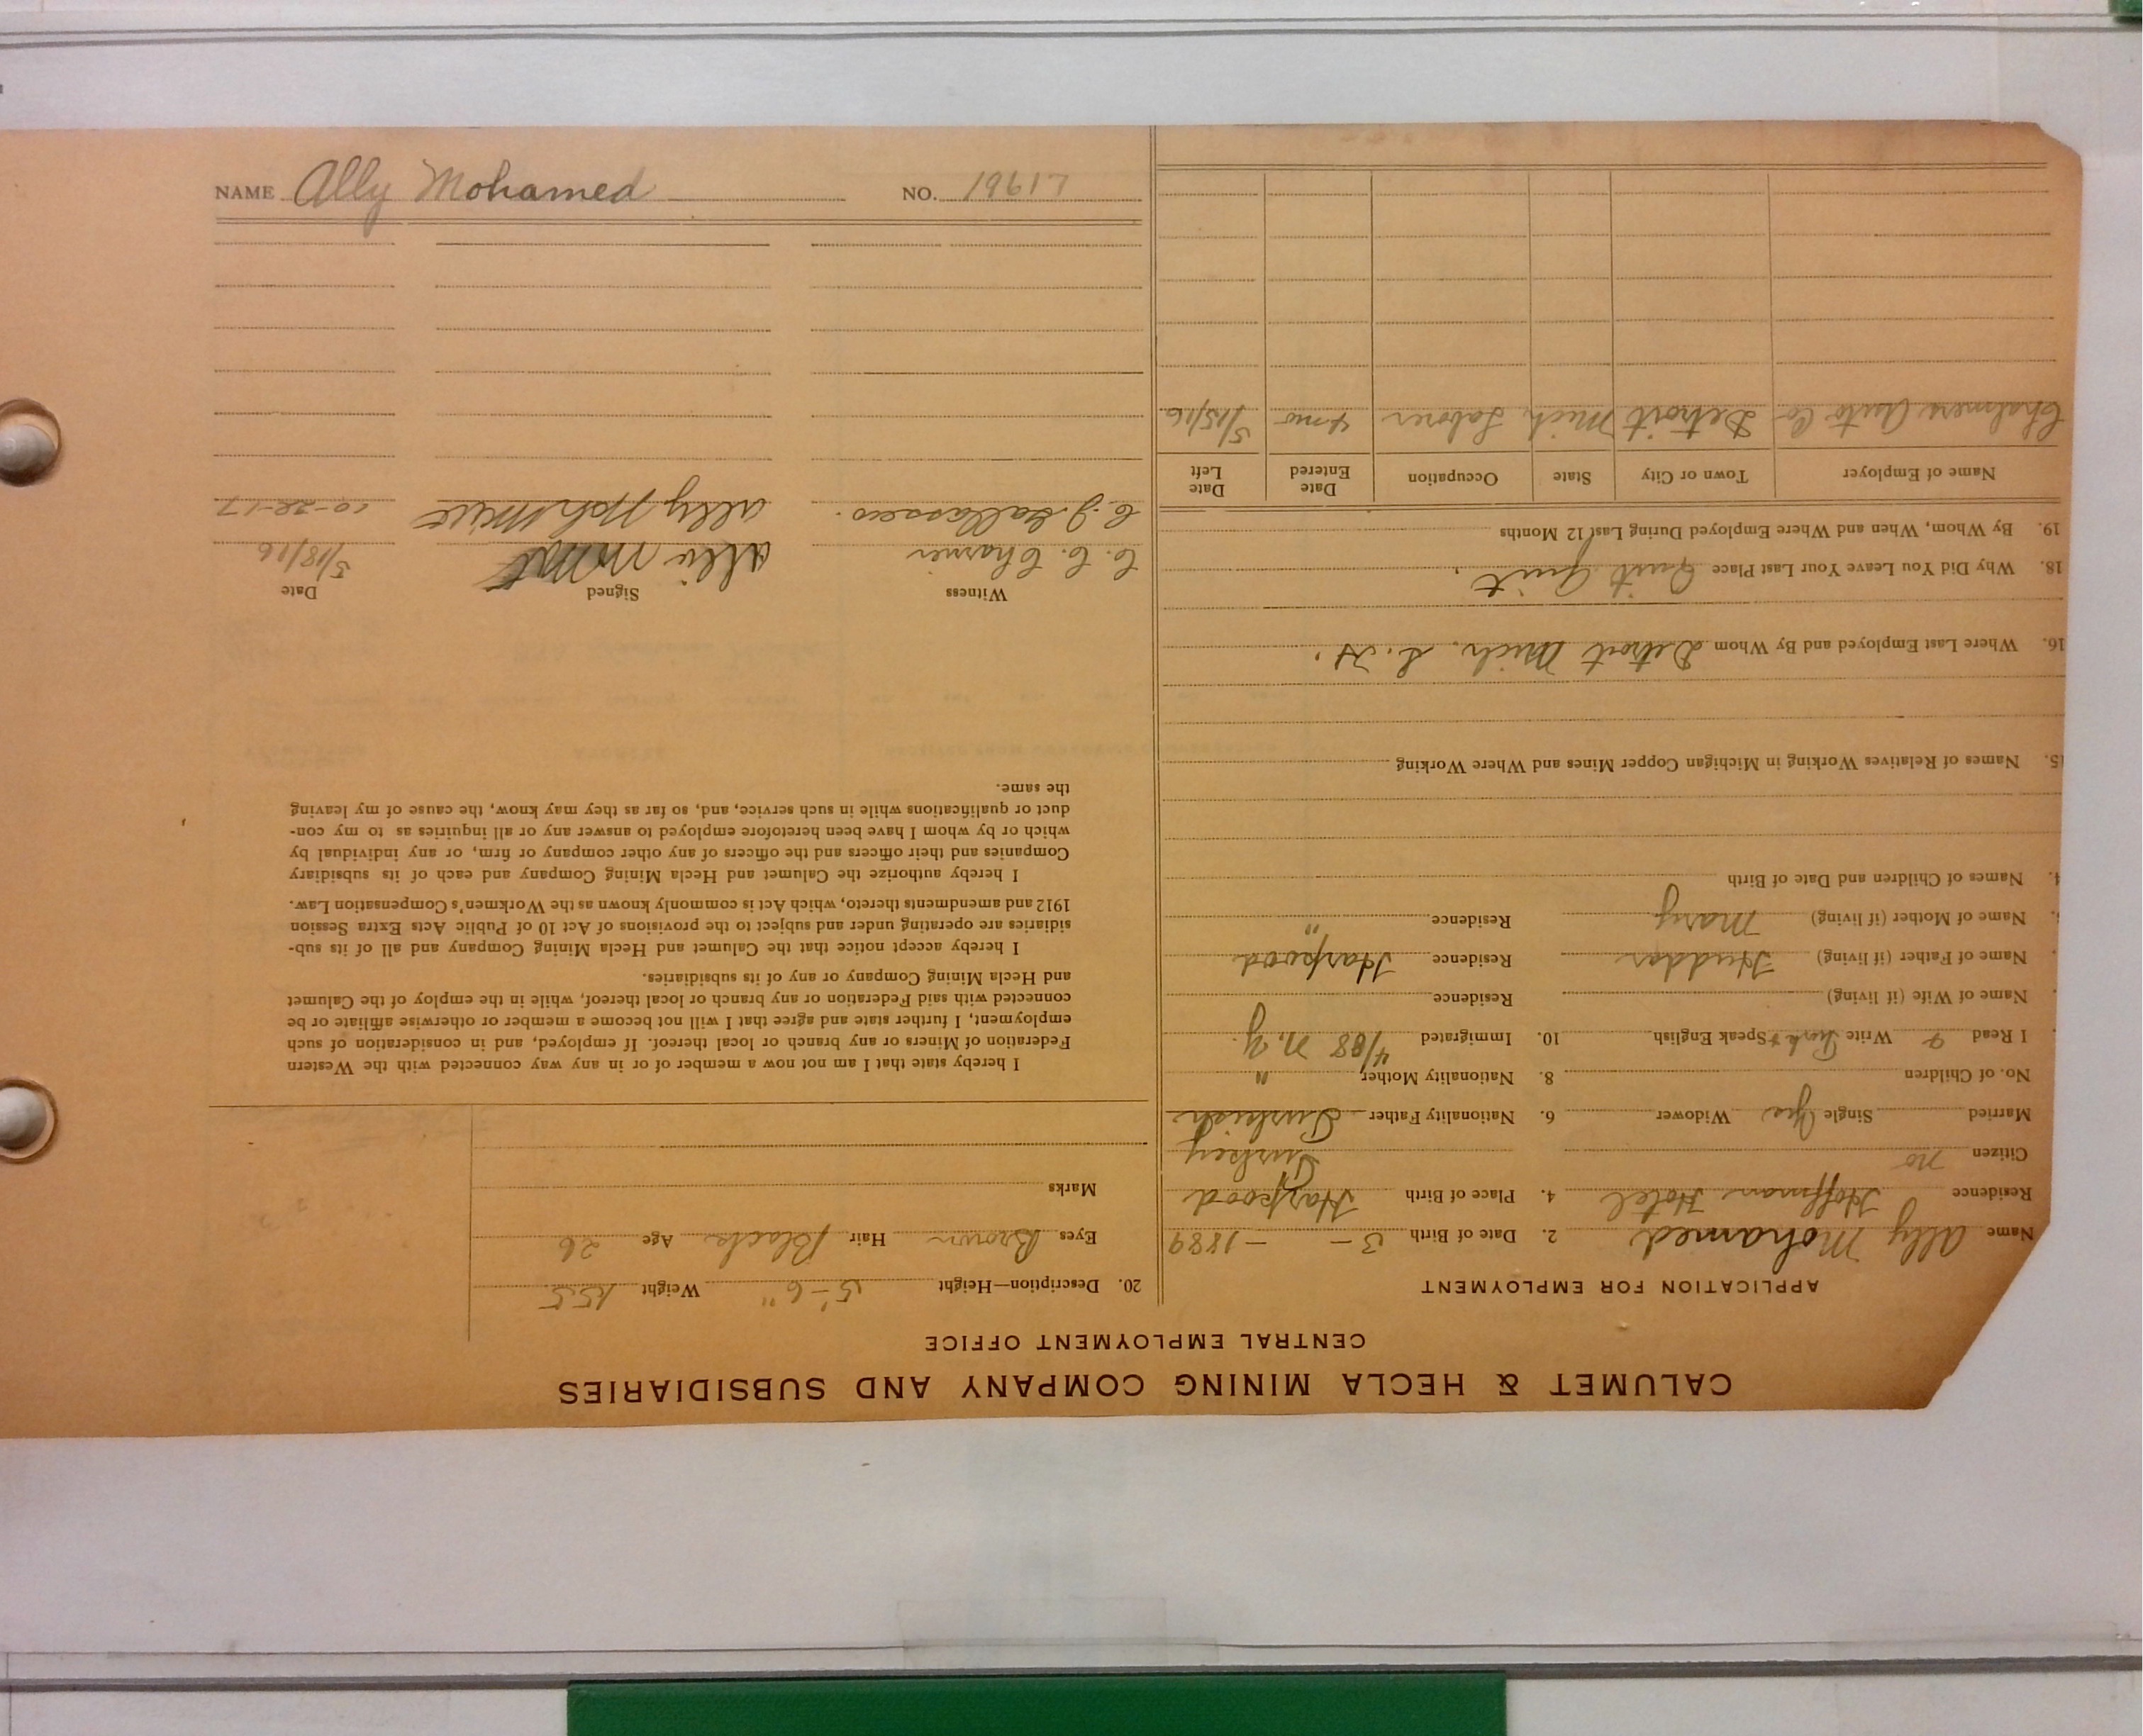 NAME Ally Mohamed NO. 19617
CALUMET & HECLA MINING COMPANY AND SUBSIDIARIES
CENTRAL EMPLOYMENT OFFICE
APPLICATION FOR EMPLOYMENT
Name Ally Mohamed 2. Date of Birth 3 - - 1889
Residence Hoffman Hotel 4. Place of Birth Harpood
Citizen no Turkey
Married Single Yes Widower 6. Nationality Father Turkish
No. of Children 8. Nationality Mother "
I Read & Write Turk & Speak English 10. Immigrated 4/08 N.Y.
Name of Wife (if living) Residence
Name of Father (if living) Huddar Residence Harpood
Name of Mother (if living) Mary Residence "
4. Names of Children and Date of Birth
15. Names of Relatives Working in Michigan Copper Mines and Where Working
16. Where Last Employed and By Whom Detroit Mich. L. H.
18. Why Did You Leave Your Last Place Just Quit.
19. By Whom, When and Where Employed During Last 12 Months
Name of Employer Town or City State Occupation Date Entered Date Left
Chalmers Auto Co Detroit Mich Laborer 4 mo 5/15/16
20. Description—Height 5'-6" Weight 155
Eyes Brown Hair Black Age 26
Marks
I hereby state that I am not now a member of or in any way connected with the Western
Federation of Miners or any branch or local thereof. If employed, and in consideration of such
employment, I further state and agree that I will not become a member or otherwise affiliate or be
connected with said Federation or any branch or local thereof, while in the employ of the Calumet
and Hecla Mining Company or any of its subsidiaries.
I hereby accept notice that the Calumet and Hecla Mining Company and all of its sub-
sidiaries are operating under and subject to the provisions of Act 10 of Public Acts Extra Session
1912 and amendments thereto, which Act is commonly known as the Workmen's Compensation Law.
I hereby authorize the Calumet and Hecla Mining Company and each of its subsidiary
Companies and their officers and the officers of any other company or firm, or any individual by
which or by whom I have been heretofore employed to answer any or all inquiries as to my con-
duct or qualifications while in such service, and, so far as they may know, the cause of my leaving
the same.
Witness Signed Date
C. C. Charner Alli 5/18/16
C. J. Ally 10-22-17